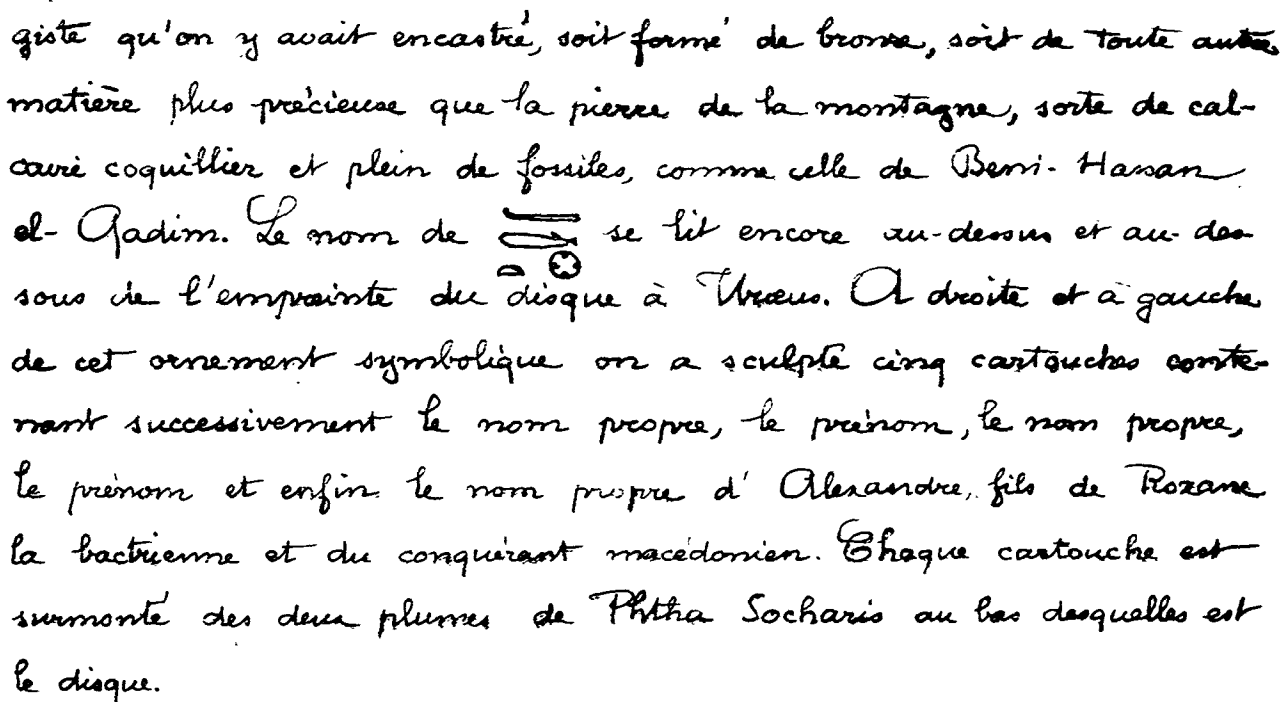 giste qu'on y avait encastré, soit formé de bronze, soit de toute autre
matière plus précieuse que la pierre de la montagne, sorte de cal-
caire coquillier et plein de fossiles, comme celle de Beni-Hassan
el-Qadim. Le nom de se lit encore au-dessus et au-des
sous de l'empreinte du disque à Uræus. A droite et à gauche
de cet ornement symbolique on a sculpté cinq cartouches conte-
nant successivement le nom propre, le prénom, le nom propre,
le prénom et enfin le nom propre d'Alexandre, fils de Roxane
la bactrienne et du conquérant macédonien. Chaque cartouche est
surmonté des deux plumes de Phtha Socharis au bas desquelles est
le disque.